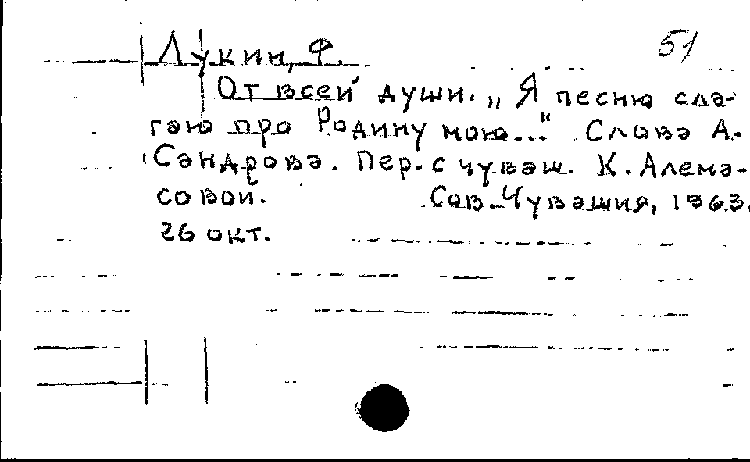 51
Лукин, Ф.
От всей души. „Я песню сла-
гаю про Родину мою..." Слова А.
Сандрова. Пер. с чуваш. К. Алема-
совой. Сов. Чувашия, 1963.
26 окт.